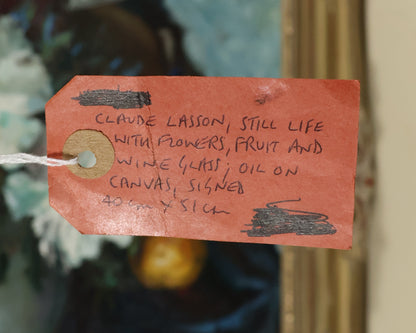 CLAUDE LASSON, STILL LIFE
WITH FLOWERS, FRUIT AND
WINE GLASS; OIL ON
CANVAS, SIGNED
40cm x 51cm